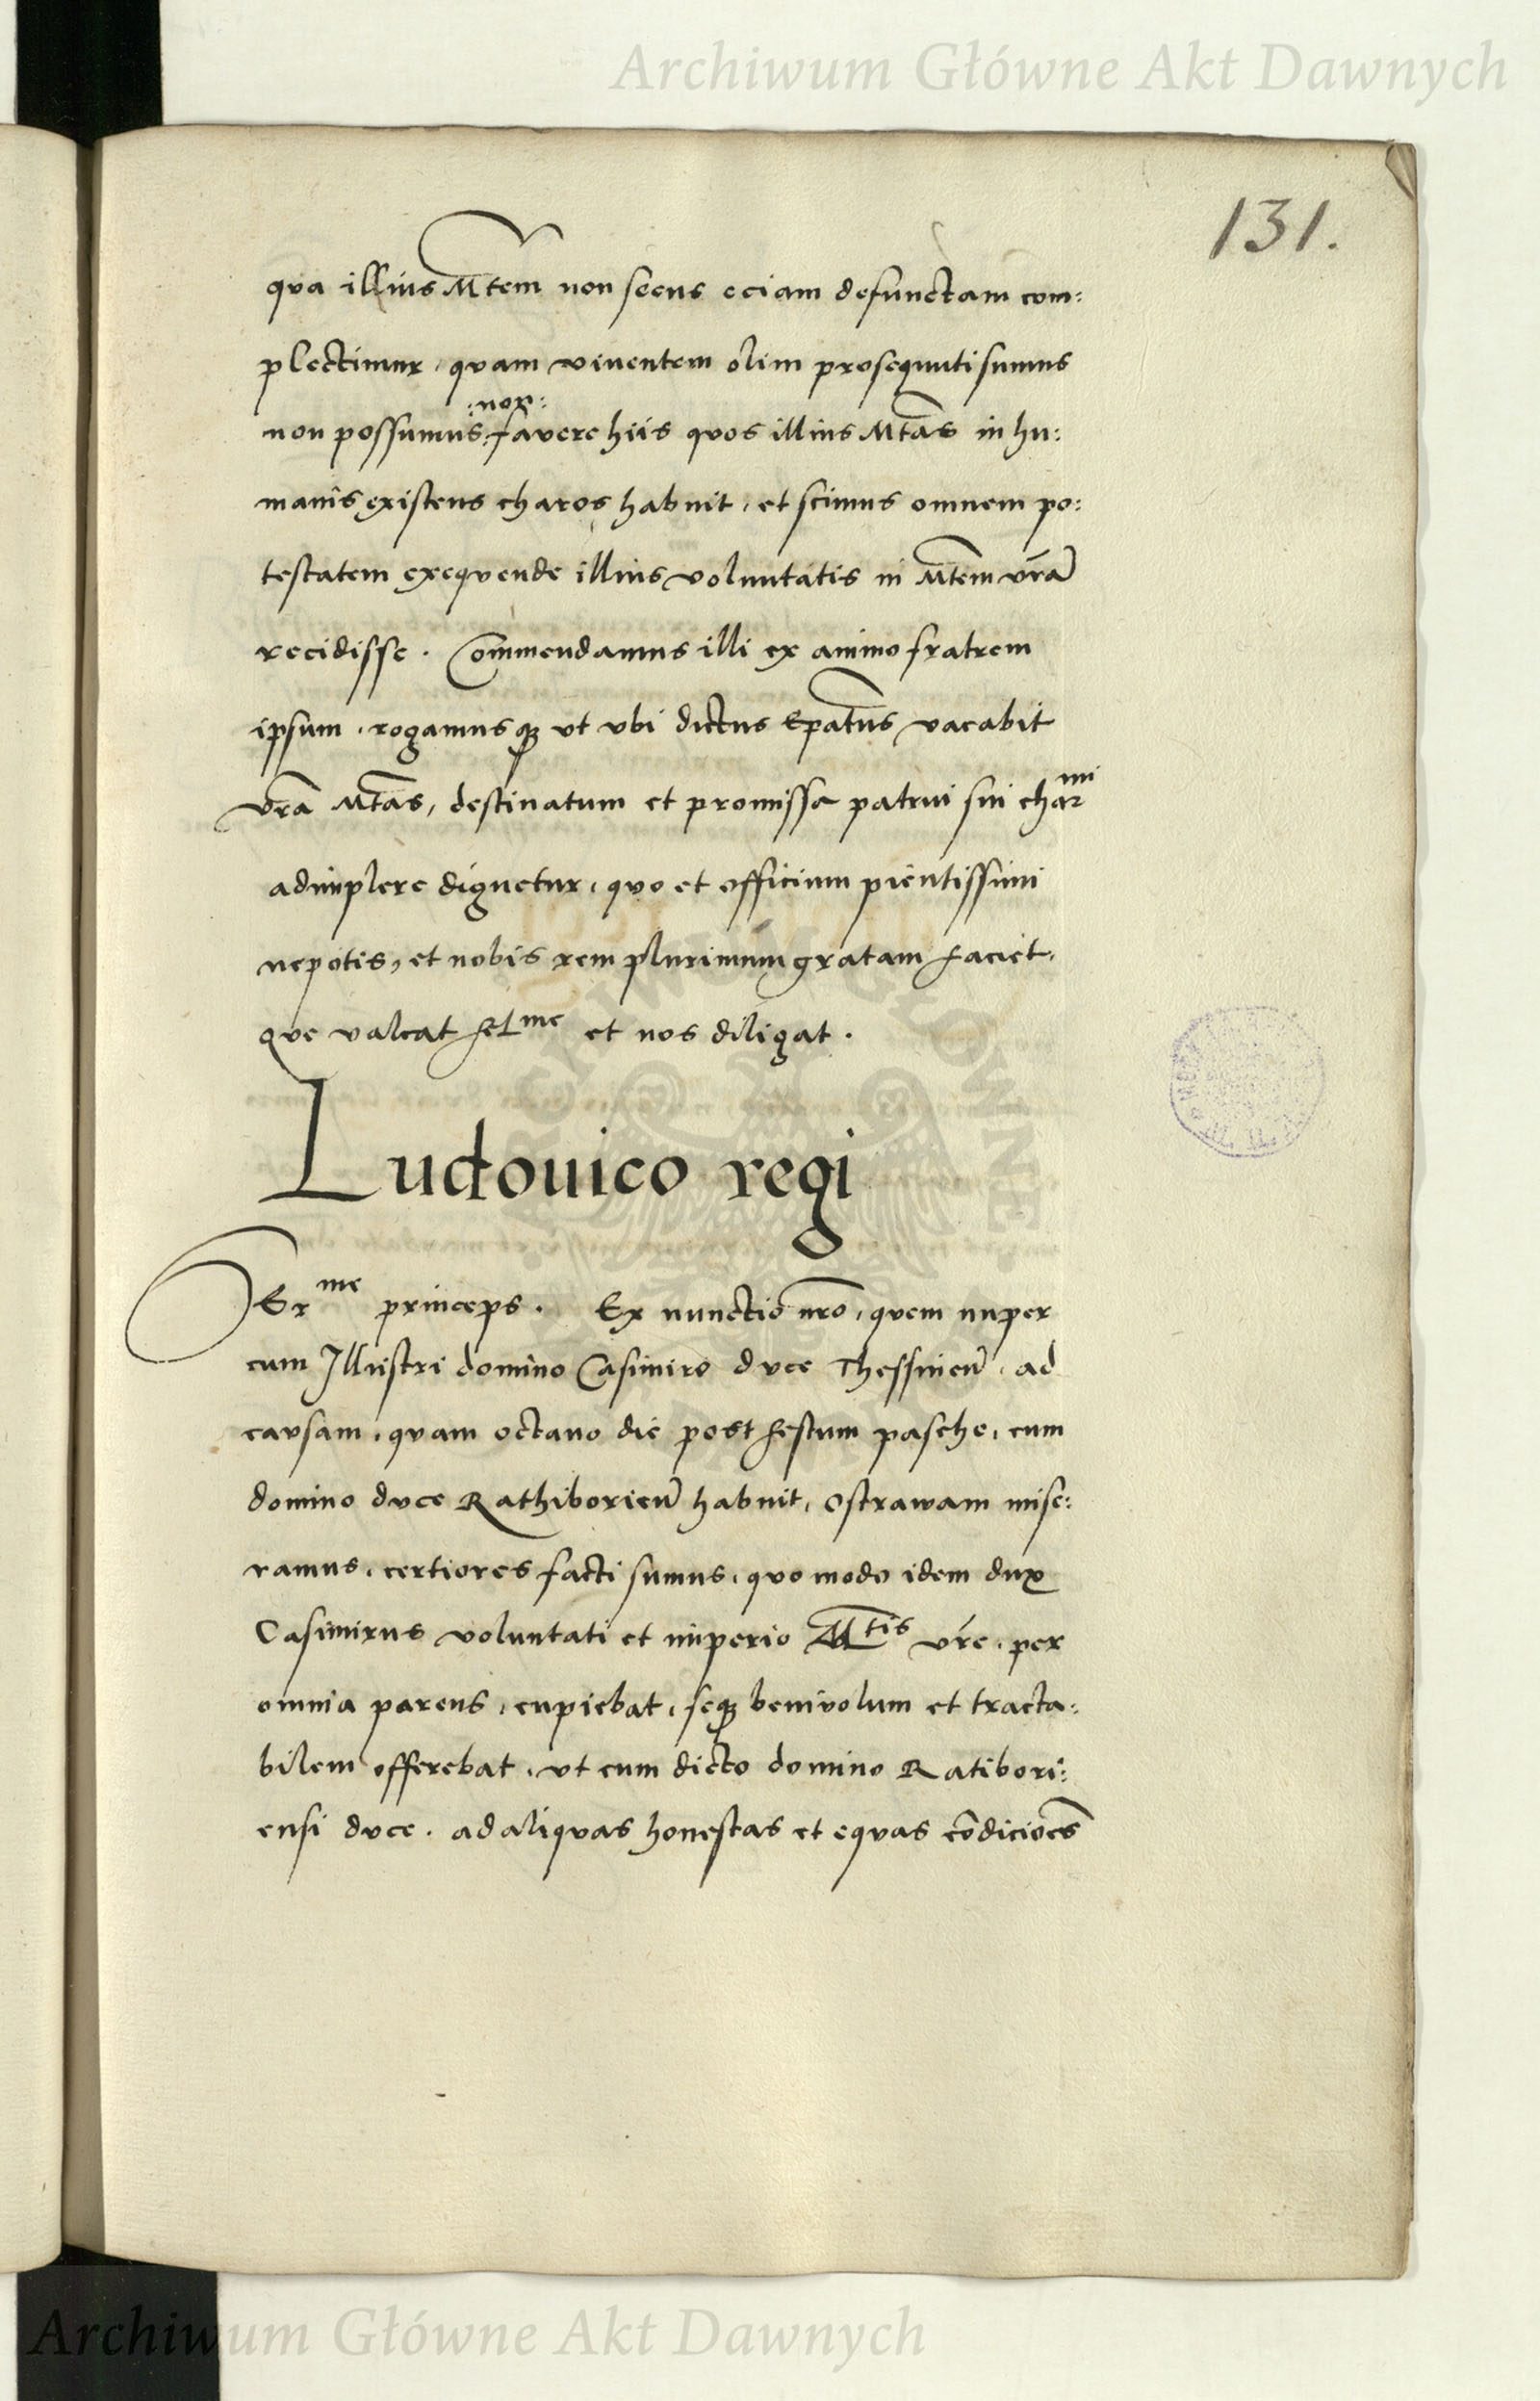 Archiwum Główne Akt Dawnych
131.
qua illius Mtem non secus eciam defunctam com:
plectimur, quam viventem olim prosequuti sumus
:non:
non possumus favere hiis quos illius Mtas in hu:
manis existens charos habuit, et scimus omnem po:
testatem exequende illius voluntatis in Mtem vram
recidisse. Commendamus illi ex animo fratrem
ipsum, rogamusq ut ubi dictus Epatus vacabit
vra Mtas, destinatum et promissa patrui sui charmi
adimplere dignetur, quo et officium pientissimi
nepotis, et nobis rem plurimum gratam faciet,
que valeat felme et nos diligat.
Ludouico regi
Serme princeps. Ex nunctio nro, quem nuper
cum Illustri domino Casimiro duce Thessinen, ad
causam, quam octavo die post festum pasche, cum
domino duce Rathiborien habuit, Ostrawam mise:
ramus, certiores facti sumus, quo modo idem dux
Casimirus voluntati et imperio Mtis vre, per
omnia parens, cupiebat, seq benivolum et tracta:
bilem offerebat, ut cum dicto domino Ratibori:
ensi duce. ad aliquas honestas et equas condiciones
Archiwum Główne Akt Dawnych